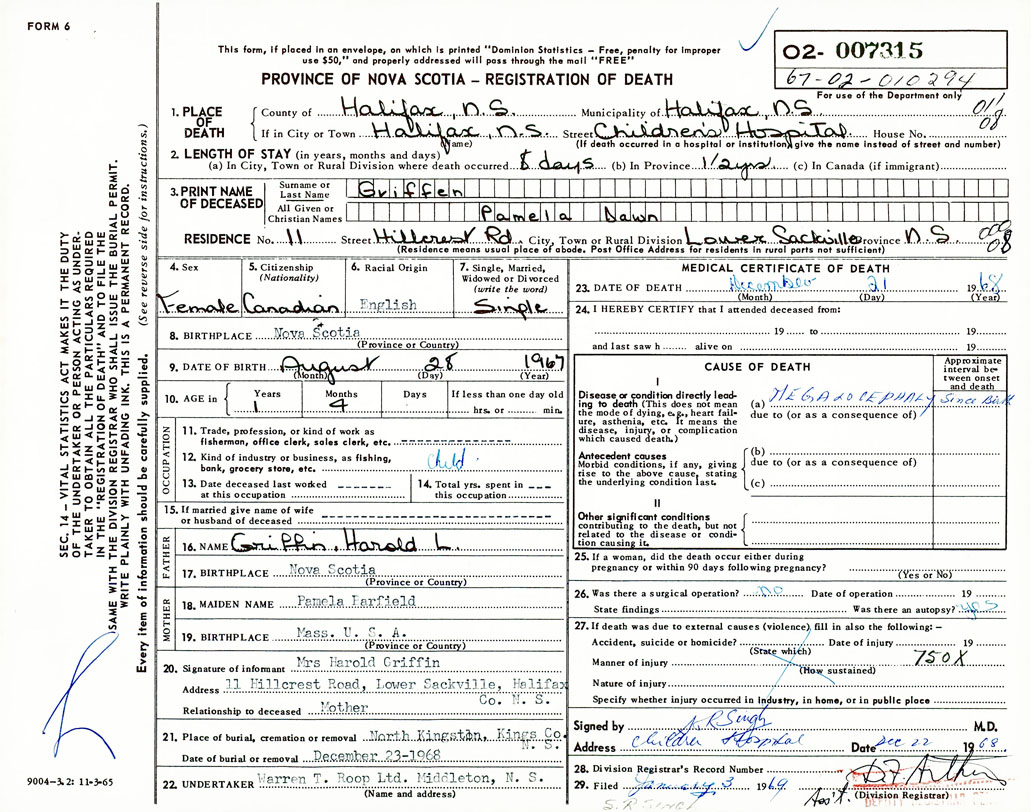 FORM 6
This form, if placed in an envelope, on which is printed "Dominion Statistics – Free, penalty for improper
use $50," and properly addressed will pass through the mail "FREE"
PROVINCE OF NOVA SCOTIA – REGISTRATION OF DEATH
O2- 007315
67-02-010294
For use of the Department only
011
08
1. PLACE OF DEATH
County of Halifax, N.S. Municipality of Halifax, N.S
If in City or Town Halifax, N.S. Street Children's Hospital House No.
(Name) (If death occurred in a hospital or institution, give the name instead of street and number)
2. LENGTH OF STAY (in years, months and days)
(a) In City, Town or Rural Division where death occurred 8 days (b) In Province 1 1/2 yrs (c) In Canada (if immigrant)
3. PRINT NAME OF DECEASED
Surname or Last Name Griffen
All Given or Christian Names Pamela Dawn
RESIDENCE No. 11 Street Hillcrest Rd. City, Town or Rural Division Lower Sackville Province N.S.
08
(Residence means usual place of abode. Post Office Address for residents in rural parts not sufficient)
4. Sex
Female
5. Citizenship
(Nationality)
Canadian
6. Racial Origin
English
7. Single, Married,
Widowed or Divorced
(write the word)
Single
8. BIRTHPLACE Nova Scotia
(Province or Country)
9. DATE OF BIRTH August 28 1967
(Month) (Day) (Year)
10. AGE in Years Months Days If less than one day old
1 4 hrs. or min.
OCCUPATION
11. Trade, profession, or kind of work as
fisherman, office clerk, sales clerk, etc.
12. Kind of industry or business, as fishing,
bank, grocery store, etc. Child
13. Date deceased last worked
at this occupation
14. Total yrs. spent in
this occupation
15. If married give name of wife
or husband of deceased
FATHER
16. NAME Griffin, Harold L.
17. BIRTHPLACE Nova Scotia
(Province or Country)
MOTHER
18. MAIDEN NAME Pamela Barfield
19. BIRTHPLACE Mass. U. S. A.
(Province or Country)
20. Signature of informant Mrs Harold Griffin
Address 11 Hillcrest Road, Lower Sackville, Halifax
Co. N. S.
Relationship to deceased Mother
21. Place of burial, cremation or removal North Kingston, Kings Co.
N. S.
Date of burial or removal December 23-1968
22. UNDERTAKER Warren T. Roop Ltd. Middleton, N. S.
(Name and address)
MEDICAL CERTIFICATE OF DEATH
23. DATE OF DEATH December 21 1968
(Month) (Day) (Year)
24. I HEREBY CERTIFY that I attended deceased from:
19 to 19
and last saw h alive on 19
CAUSE OF DEATH
Approximate
interval be-
tween onset
and death
I
Disease or condition directly lead-
ing to death (This does not mean
the mode of dying, e.g., heart fail-
ure, asthenia, etc. It means the
disease, injury, or complication
which caused death.)
(a) MEGALOCEPHALY Since Birth
due to (or as a consequence of)
Antecedent causes
Morbid conditions, if any, giving
rise to the above cause, stating
the underlying condition last.
(b)
due to (or as a consequence of)
(c)
II
Other significant conditions
contributing to the death, but not
related to the disease or condi-
tion causing it.
25. If a woman, did the death occur either during
pregnancy or within 90 days following pregnancy?
(Yes or No)
26. Was there a surgical operation? no Date of operation 19
State findings Was there an autopsy? yes
27. If death was due to external causes (violence) fill in also the following: –
Accident, suicide or homicide? Date of injury 19
(State which)
750X
Manner of injury
(How sustained)
Nature of injury
Specify whether injury occurred in industry, in home, or in public place
Signed by S R Singh M.D.
Address Children Hospital Date Dec 22 1968.
28. Division Registrar's Record Number
29. Filed January 3 1969
Ass't (Division Registrar)
S. R. SINGH
SEC. 14 – VITAL STATISTICS ACT MAKES IT THE DUTY
OF THE UNDERTAKER OR PERSON ACTING AS UNDER-
TAKER TO OBTAIN ALL THE PARTICULARS REQUIRED
IN THE "REGISTRATION OF DEATH" AND TO FILE THE
SAME WITH THE DIVISION REGISTRAR WHO SHALL ISSUE THE BURIAL PERMIT.
WRITE PLAINLY WITH UNFADING INK. THIS IS A PERMANENT RECORD.
Every item of information should be carefully supplied. (See reverse side for instructions.)
9004-3.2: 11-3-65